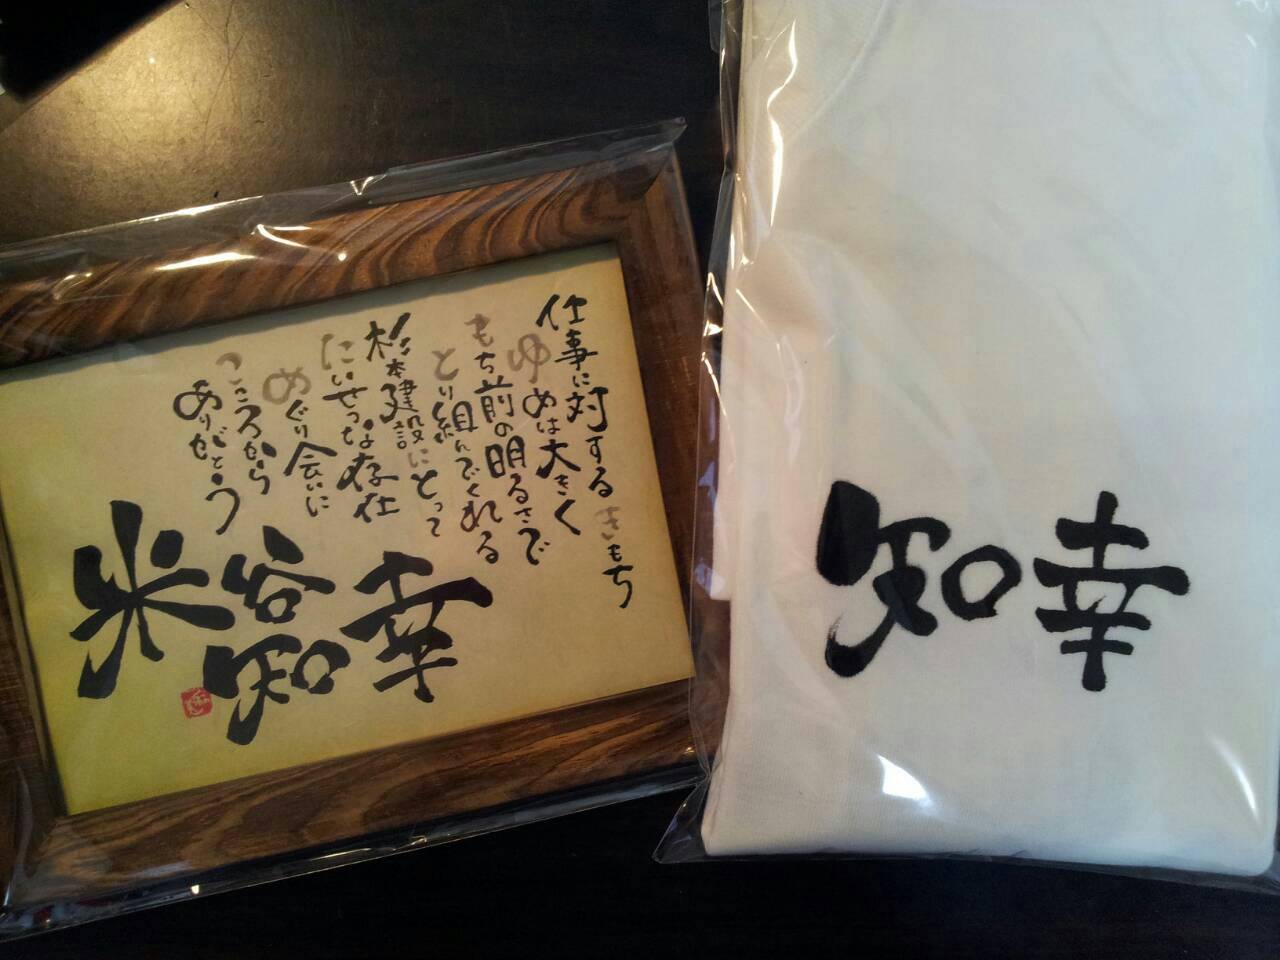 仕事に対するきもち
ゆめは大きく
もち前の明るさで
とり組んでくれる
杉本建設にとって
たいせつな存在
めぐり会いに
こころから
ありがとう
米谷
知幸
知幸